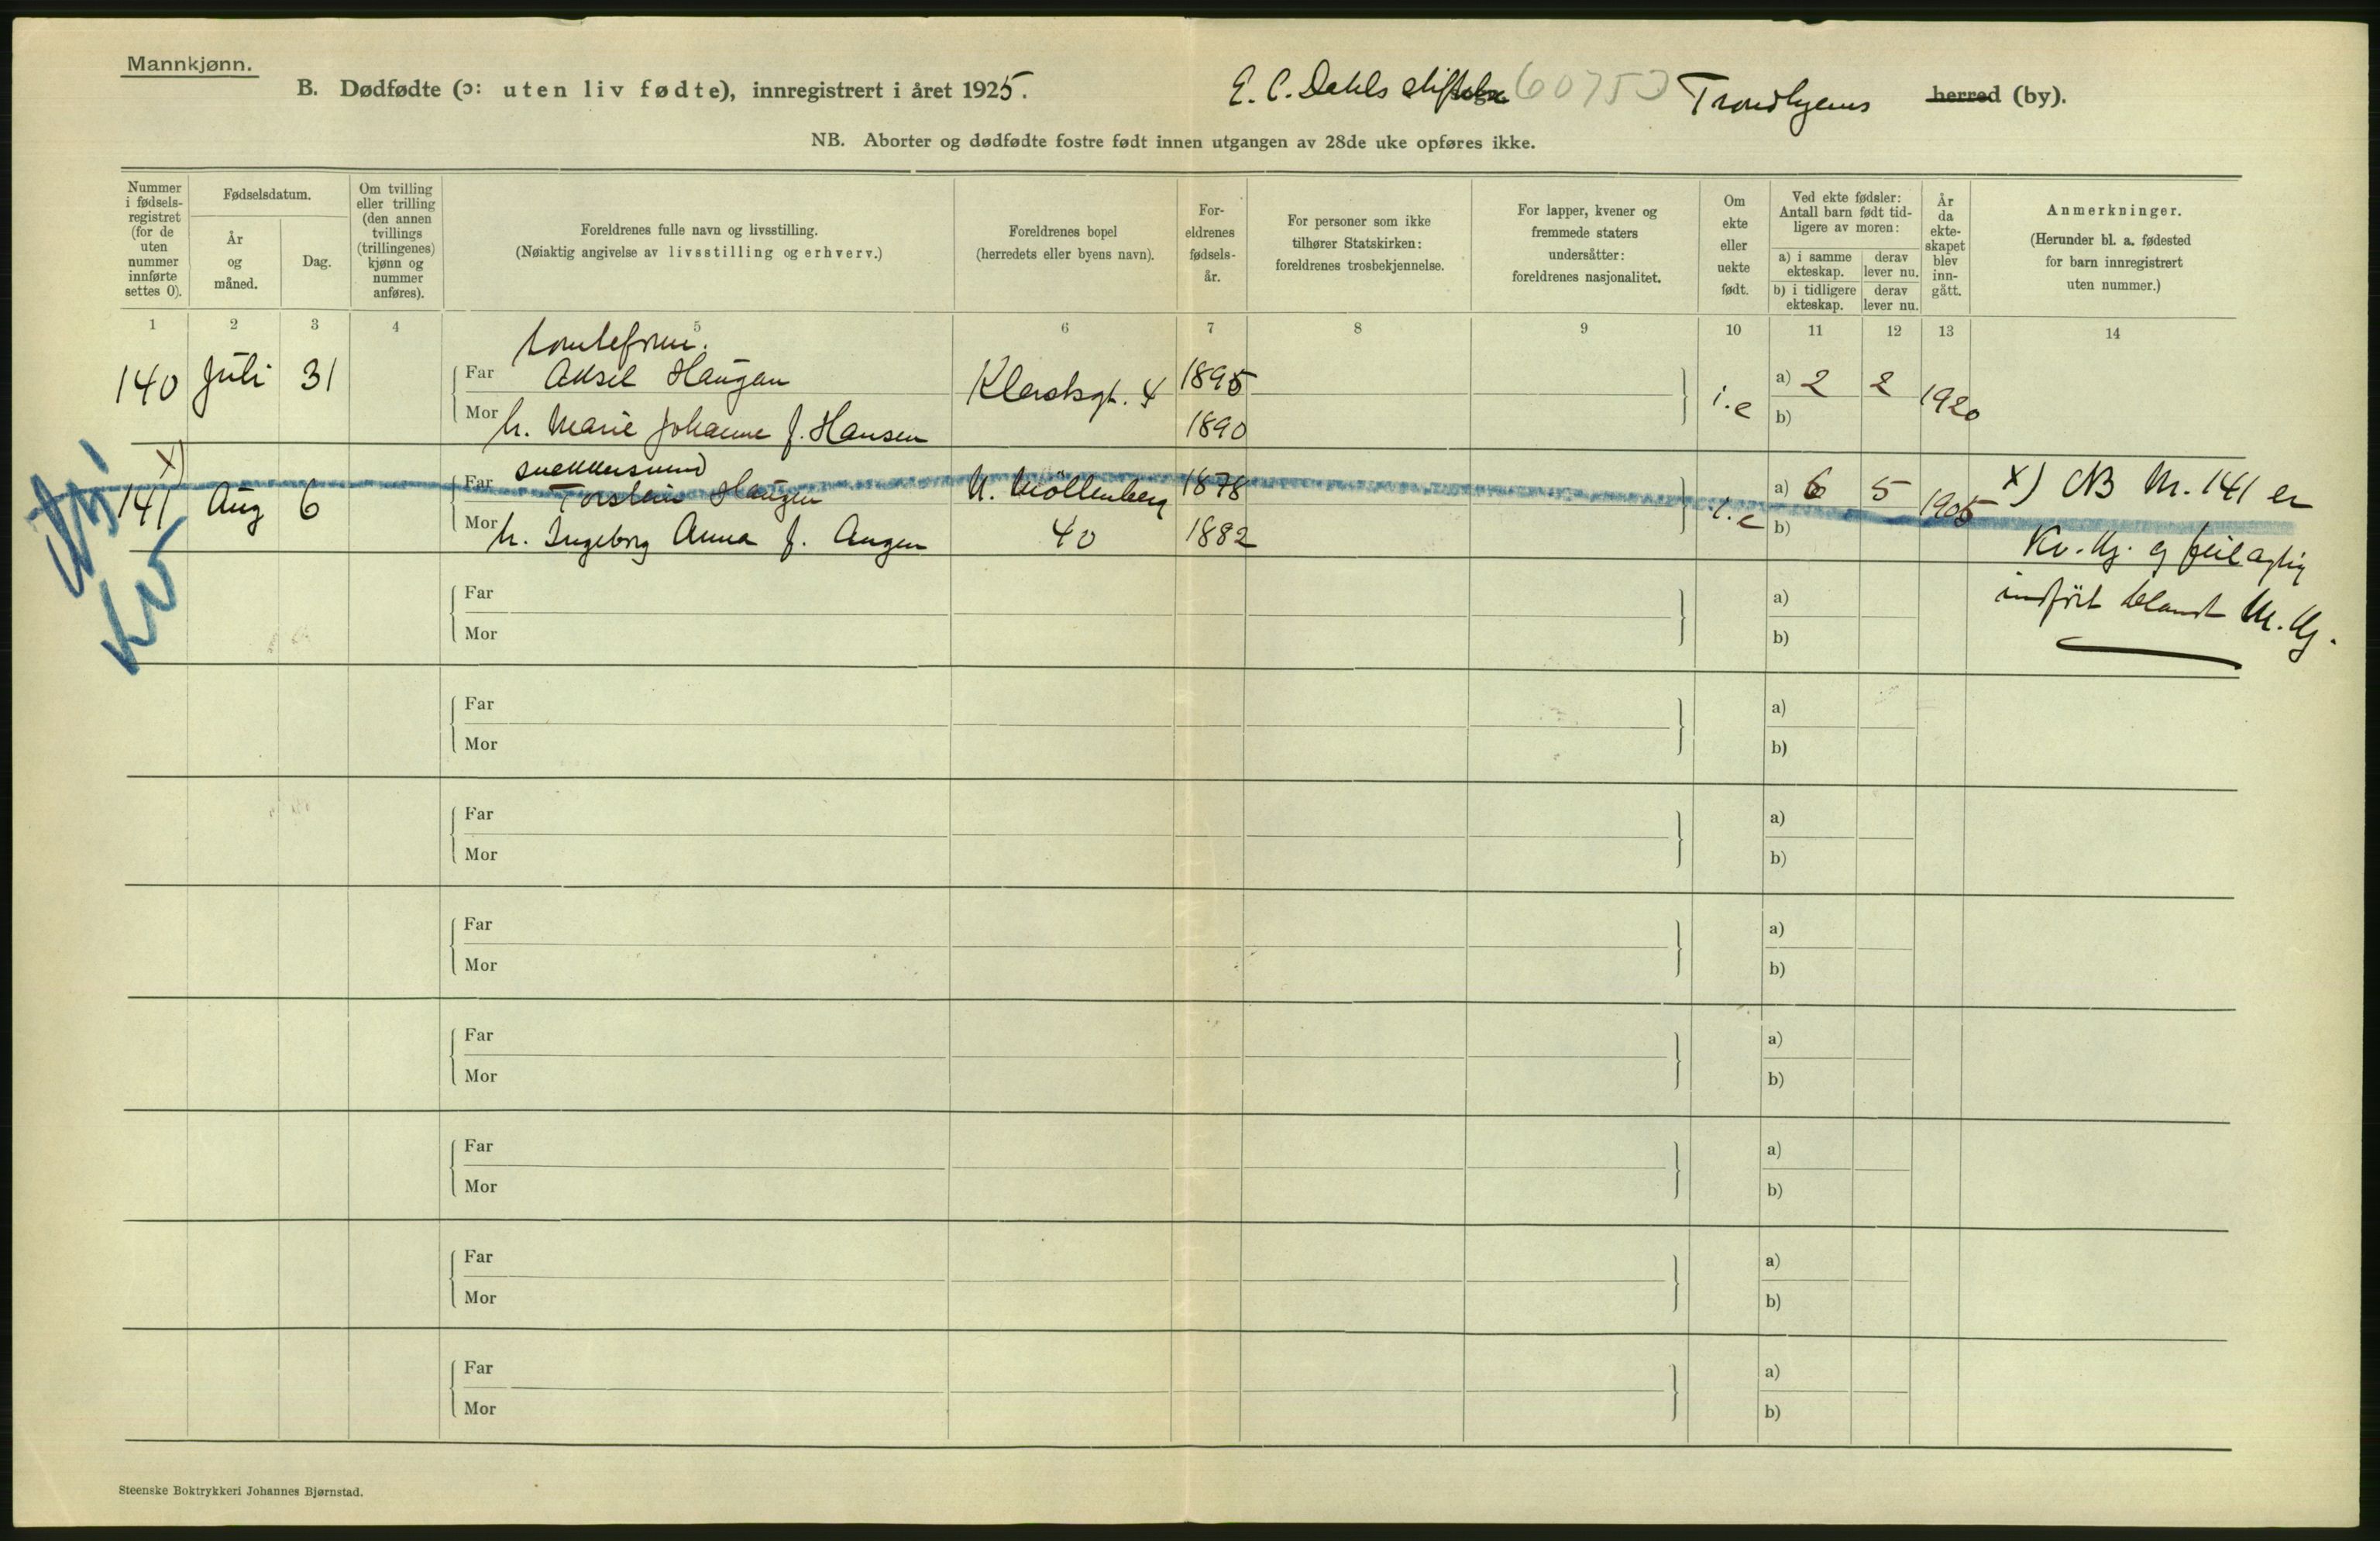 Mannkjønn.
B. Dødfødte (ɔ: uten liv fødte), innregistrert i året 1925.
E. C. Dahls stiftelse 60753 Trondhjems herred (by).
NB. Aborter og dødfødte fostre født innen utgangen av 28de uke opføres ikke.
Nummer i fødsels-registret (for de uten nummer innførte settes 0).
Fødselsdatum.
År og måned.
Dag.
Om tvilling eller trilling (den annen tvillings (trillingenes) kjønn og nummer anføres).
Foreldrenes fulle navn og livsstilling.
(Nøiaktig angivelse av livsstilling og erhverv.)
Foreldrenes bopel
(herredets eller byens navn).
For-eldrenes fødsels-år.
For personer som ikke tilhører Statskirken: foreldrenes trosbekjennelse.
For lapper, kvener og fremmede staters undersåtter: foreldrenes nasjonalitet.
Om ekte eller uekte født.
Ved ekte fødsler: Antall barn født tid-ligere av moren:
a) i samme ekteskap.
derav lever nu.
b) i tidligere ekteskap.
derav lever nu.
År da ekte-skapet blev inn-gått.
Anmerkninger.
(Herunder bl. a. fødested for barn innregistrert uten nummer.)
1 2 3 4 5 6 7 8 9 10 11 12 13 14
140 Juli 31 Far Aksel Haugan 1895 a) 2 2 1920
Mor h. Marie Johanne f. Hansen Klostergt. 4 1890 i.e b)
x)
141 Aug 6 Far Torstein Haugen U. Möllenberg 1878 a) 6 5 1905 x) NB Nr. 141 er
Mor h. Ingeborg Anna f. Augen 40 1882 i.e b)
Kv. kj. og feilagtig
indført blandt M. kj.
Kv
Far a)
Mor b)
Far a)
Mor b)
Far a)
Mor b)
Far a)
Mor b)
Far a)
Mor b)
Far a)
Mor b)
Far a)
Mor b)
Far a)
Mor b)
Steenske Boktrykkeri Johannes Bjørnstad.